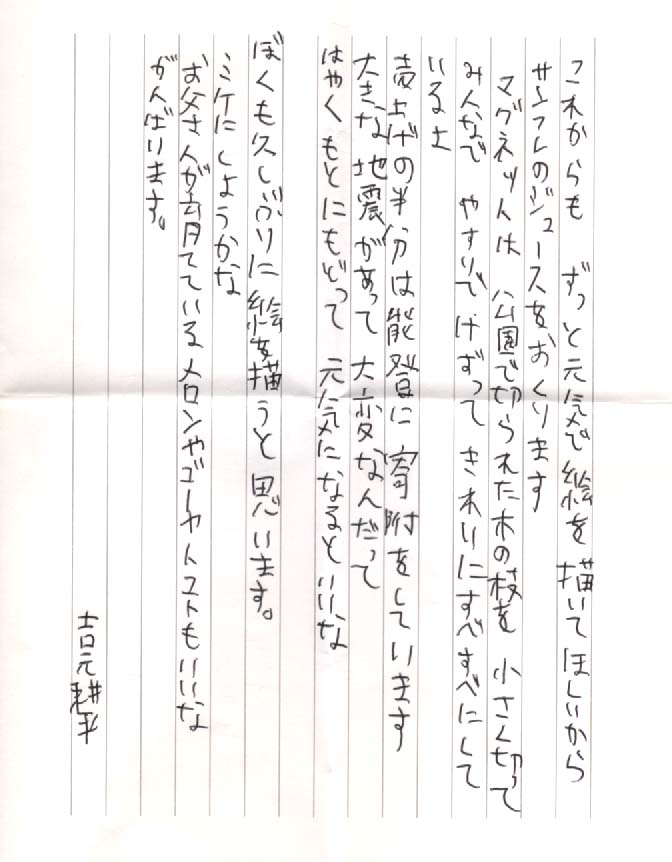 これからも ずっと元気で絵を描いてほしいから
サンフレのジュースをおくります
マグネットは 公園で切られた木の枝を 小さく切って
みんなで やすりでけずって きれいにすべすべにして
いるよ
売上げの半分は能登に寄附をしています
大きな地震があって 大変なんだって
はやくもとにもどって 元気になるといいな
ぼくも久しぶりに絵を描うと思います。
ミケにしようかな
お父さんが育てているメロンやゴーヤトマトもいいな
がんばります。
吉元耕平